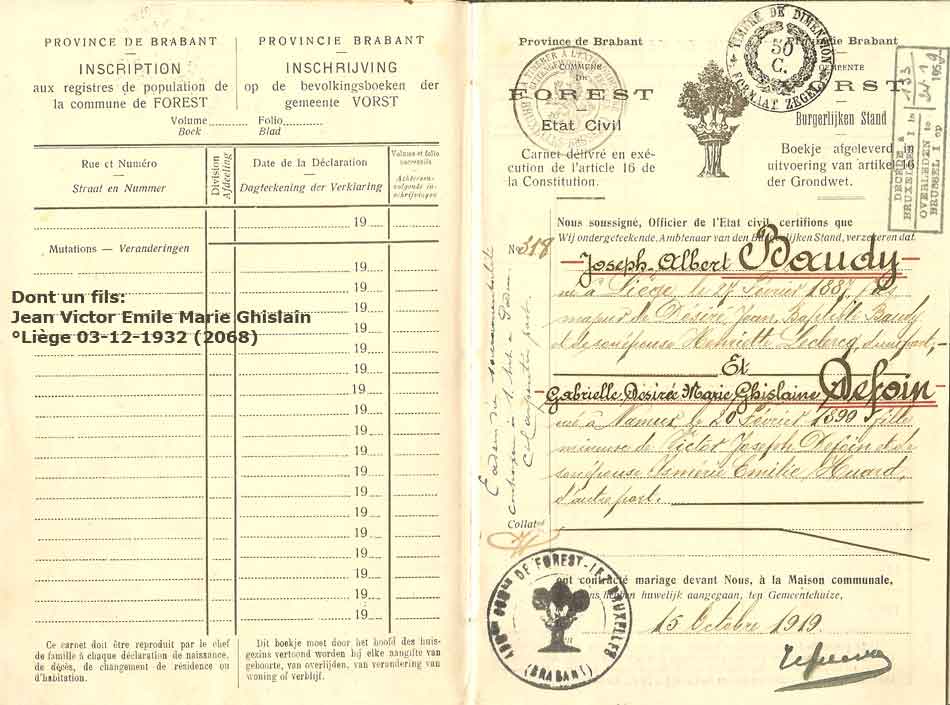 PROVINCE DE BRABANT
INSCRIPTION
aux registres de population de
la commune de FOREST
PROVINCIE BRABANT
INSCHRIJVING
op de bevolkingsboeken der
gemeente VORST
Volume ........ Folio ........
Boek Blad
Rue et Numéro
Straat en Nummer
Division
Afdeeling
Date de la Déclaration
Dagteekening der Verklaring
Volume et folio
successifs
Achtereen-
volgende in-
schrijvingen
19
Mutations — Veranderingen
19
19
19
19
19
19
19
19
19
19
19
19
19
19
19
Dont un fils:
Jean Victor Emile Marie Ghislain
°Liège 03-12-1932 (2068)
Ce carnet doit être reproduit par le chef
de famille à chaque déclaration de naissance,
de décès, de changement de résidence ou
d'habitation.
Dit boekje moet door het hoofd des huis-
gezins vertoond worden bij elke aangifte van
geboorte, van overlijden, van verandering van
woning of verblijf.
Province de Brabant
COMMUNE
DE
FOREST
Etat Civil
Carnet délivré en exé-
cution de l'article 16 de
la Constitution.
TIMBRE DE DIMENSION
50
C.
FORMAAT ZEGEL
Provincie Brabant
GEMEENTE
VORST
Burgerlijken Stand
Boekje afgeleverd in
uitvoering van artikel 16
der Grondwet.
DECEDE à
BRUXELLES I le
OVERLEDEN te
BRUSSEL I op
Nous soussigné, Officier de l'Etat civil, certifions que
Wij ondergeteekende, Ambtenaar van den Burgerlijken Stand, verzekeren dat
N° 318
Joseph-Albert Baudy
né à Liège le 27 Février 1887, fils
majeur de Désiré Jean Baptiste Baudy
et de son épouse Henriette Leclercq, d'une part,
Et
Gabrielle, Désirée Marie, Ghislaine Defoin
née à Namur le 20 Février 1890 fille
mineure de Victor Joseph Defoin et de
son épouse Ismérie Emilie Huard,
d'autre part.
Collat
ont contracté mariage devant Nous, à la Maison communale,
huwelijk aangegaan, ten Gemeentehuize,
15 Octobre 1919
DE FOREST-LEZ-BRUXELLES
(BRABANT)